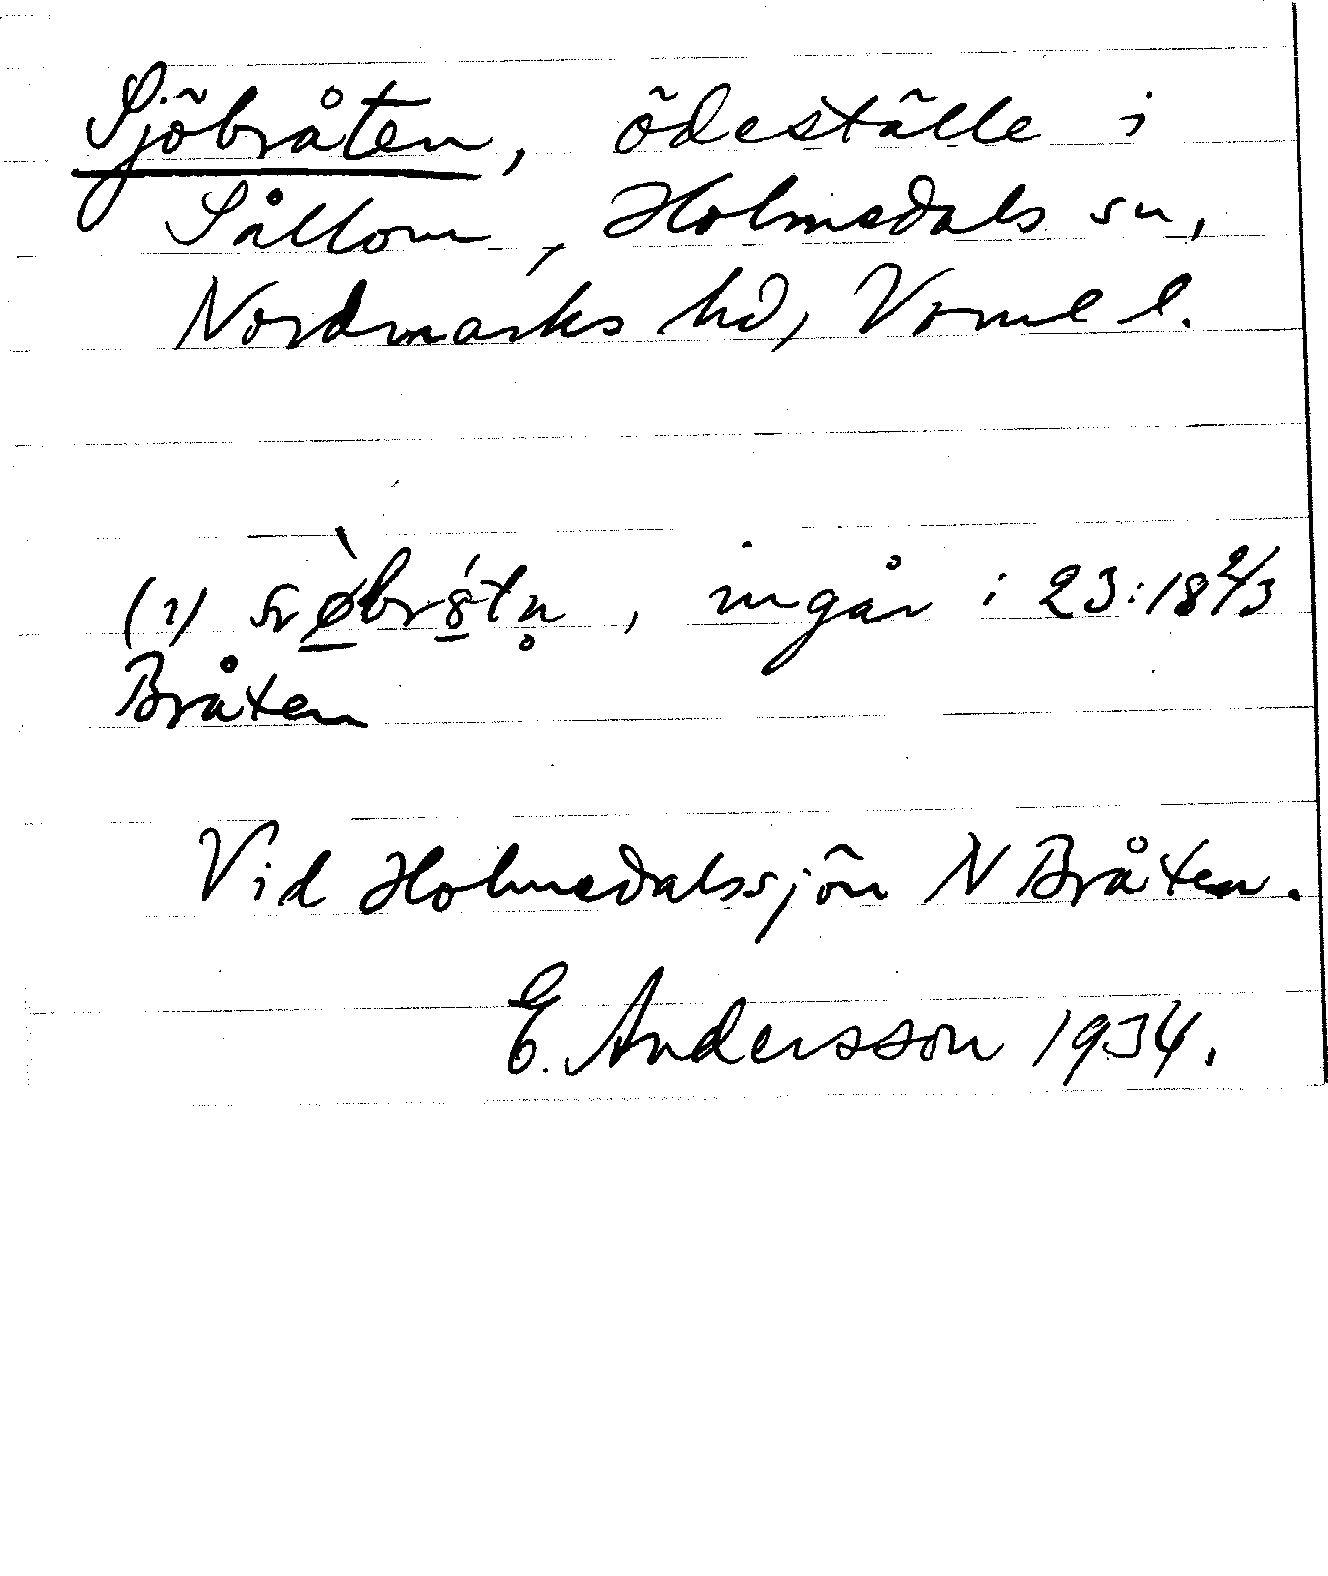 Sjöbråten, ödeställe i
Sållom, Holmedals sn,
Nordmarks hd, Vrml l.
(1) , ingår i 23:18 2/3
Bråten
Vid Holmedalssjön N Bråten.
E. Andersson 1934.